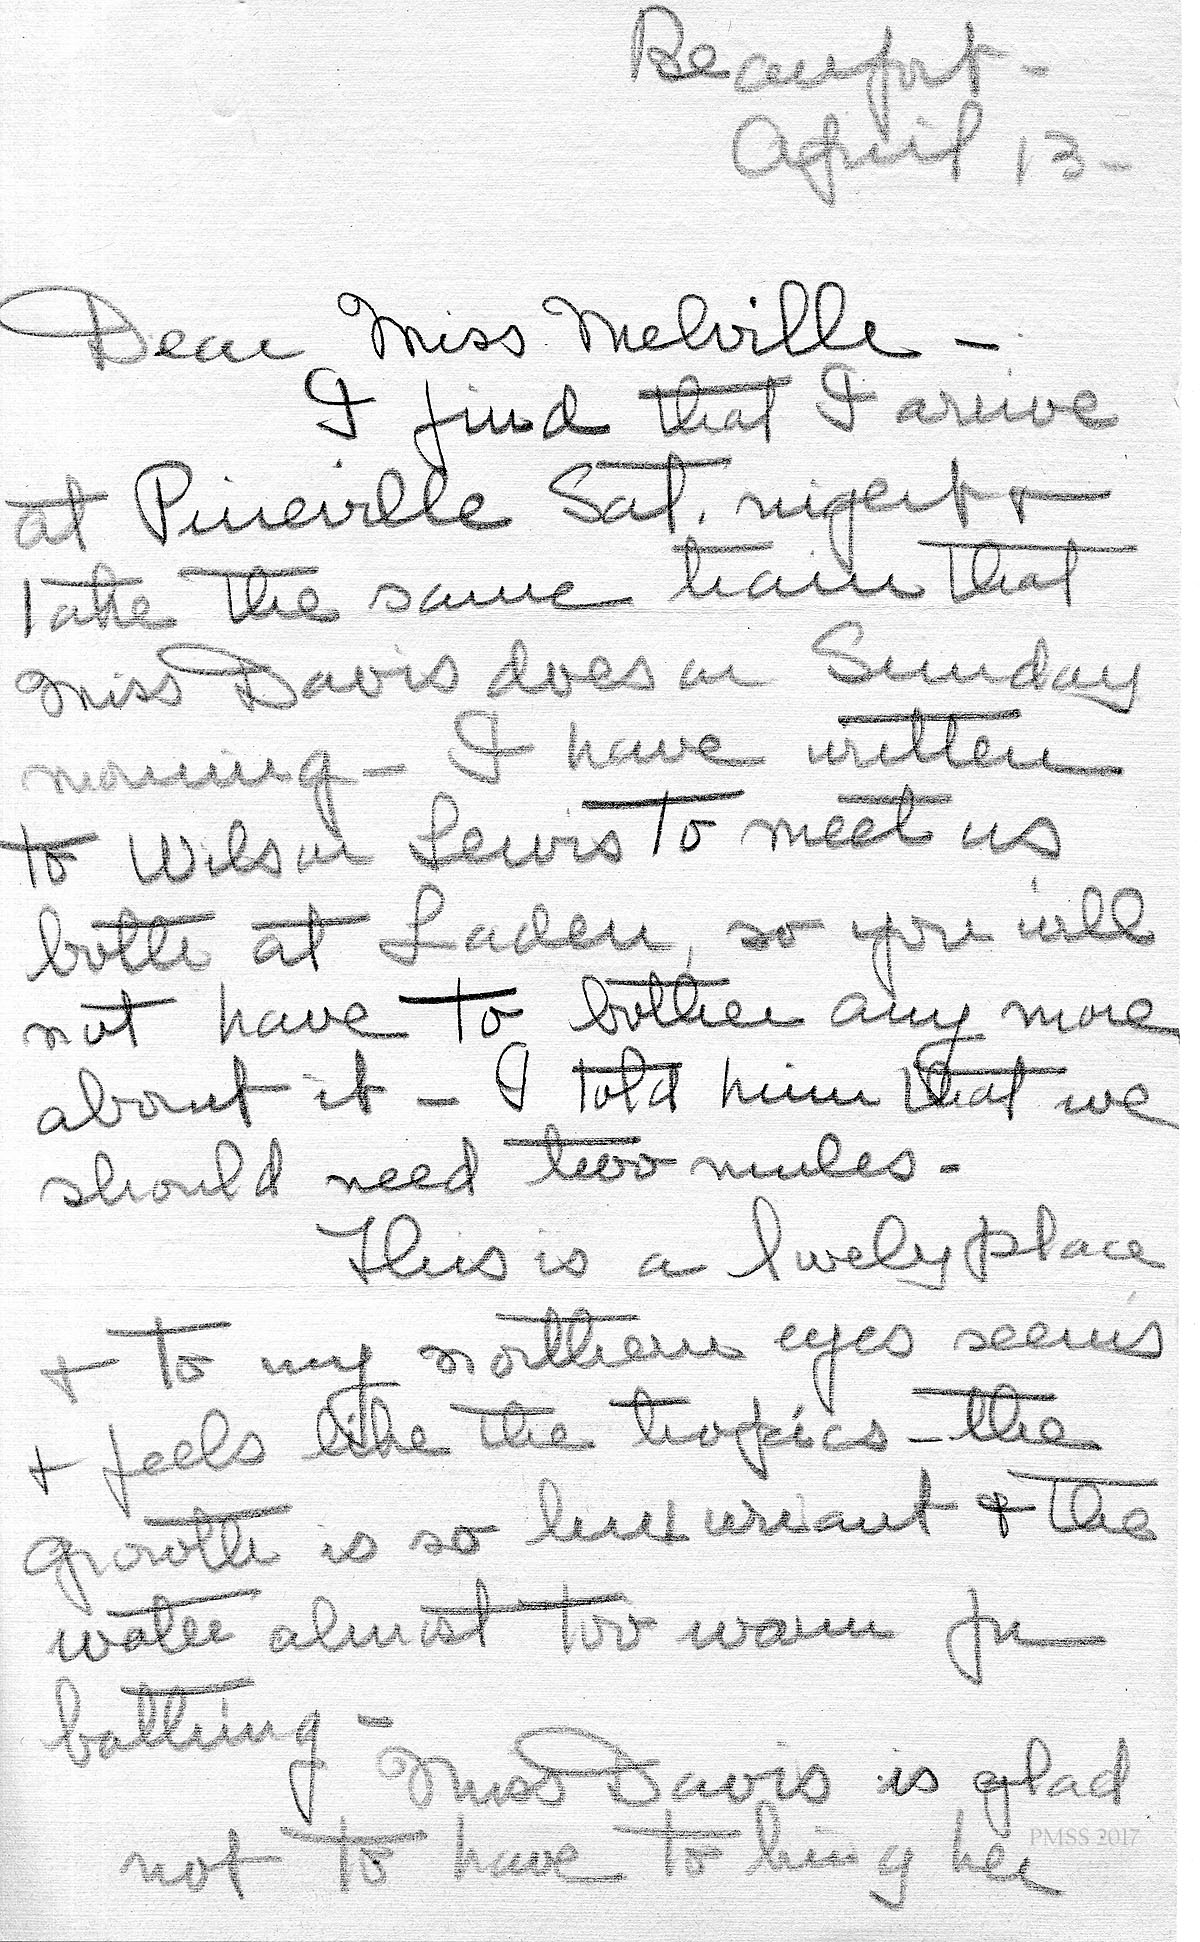 Beaufort -
April 13 -
Dear Miss Melville -
I find that I arrive
at Pineville Sat. night +
take the same train that
Miss Davis does on Sunday
morning - I have written
to Wilson Lewis to meet us
both at Laden, so you will
not have to bother any more
about it - I told him that we
should need two mules -
This is a lovely place
+ to my northern eyes seems
+ feels like the tropics - the
growth is so luxuriant & the
water almost too warm for
bathing -
Miss Davis is glad
not to have to bring her
PMSS 2017